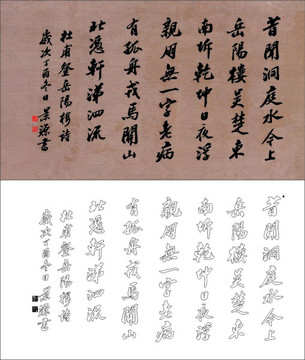 昔聞洞庭水今上
岳陽樓吳楚東
南坼乾坤日夜浮
親朋無一字老病
有孤舟戎馬關山
北憑軒涕泗流
杜甫登岳陽樓詩
歲次丁酉冬日書
昔聞洞庭水今上
岳陽樓吳楚東
南坼乾坤日夜浮
親朋無一字老病
有孤舟戎馬關山
北憑軒涕泗流
杜甫登岳陽樓詩
歲次丁酉冬日書